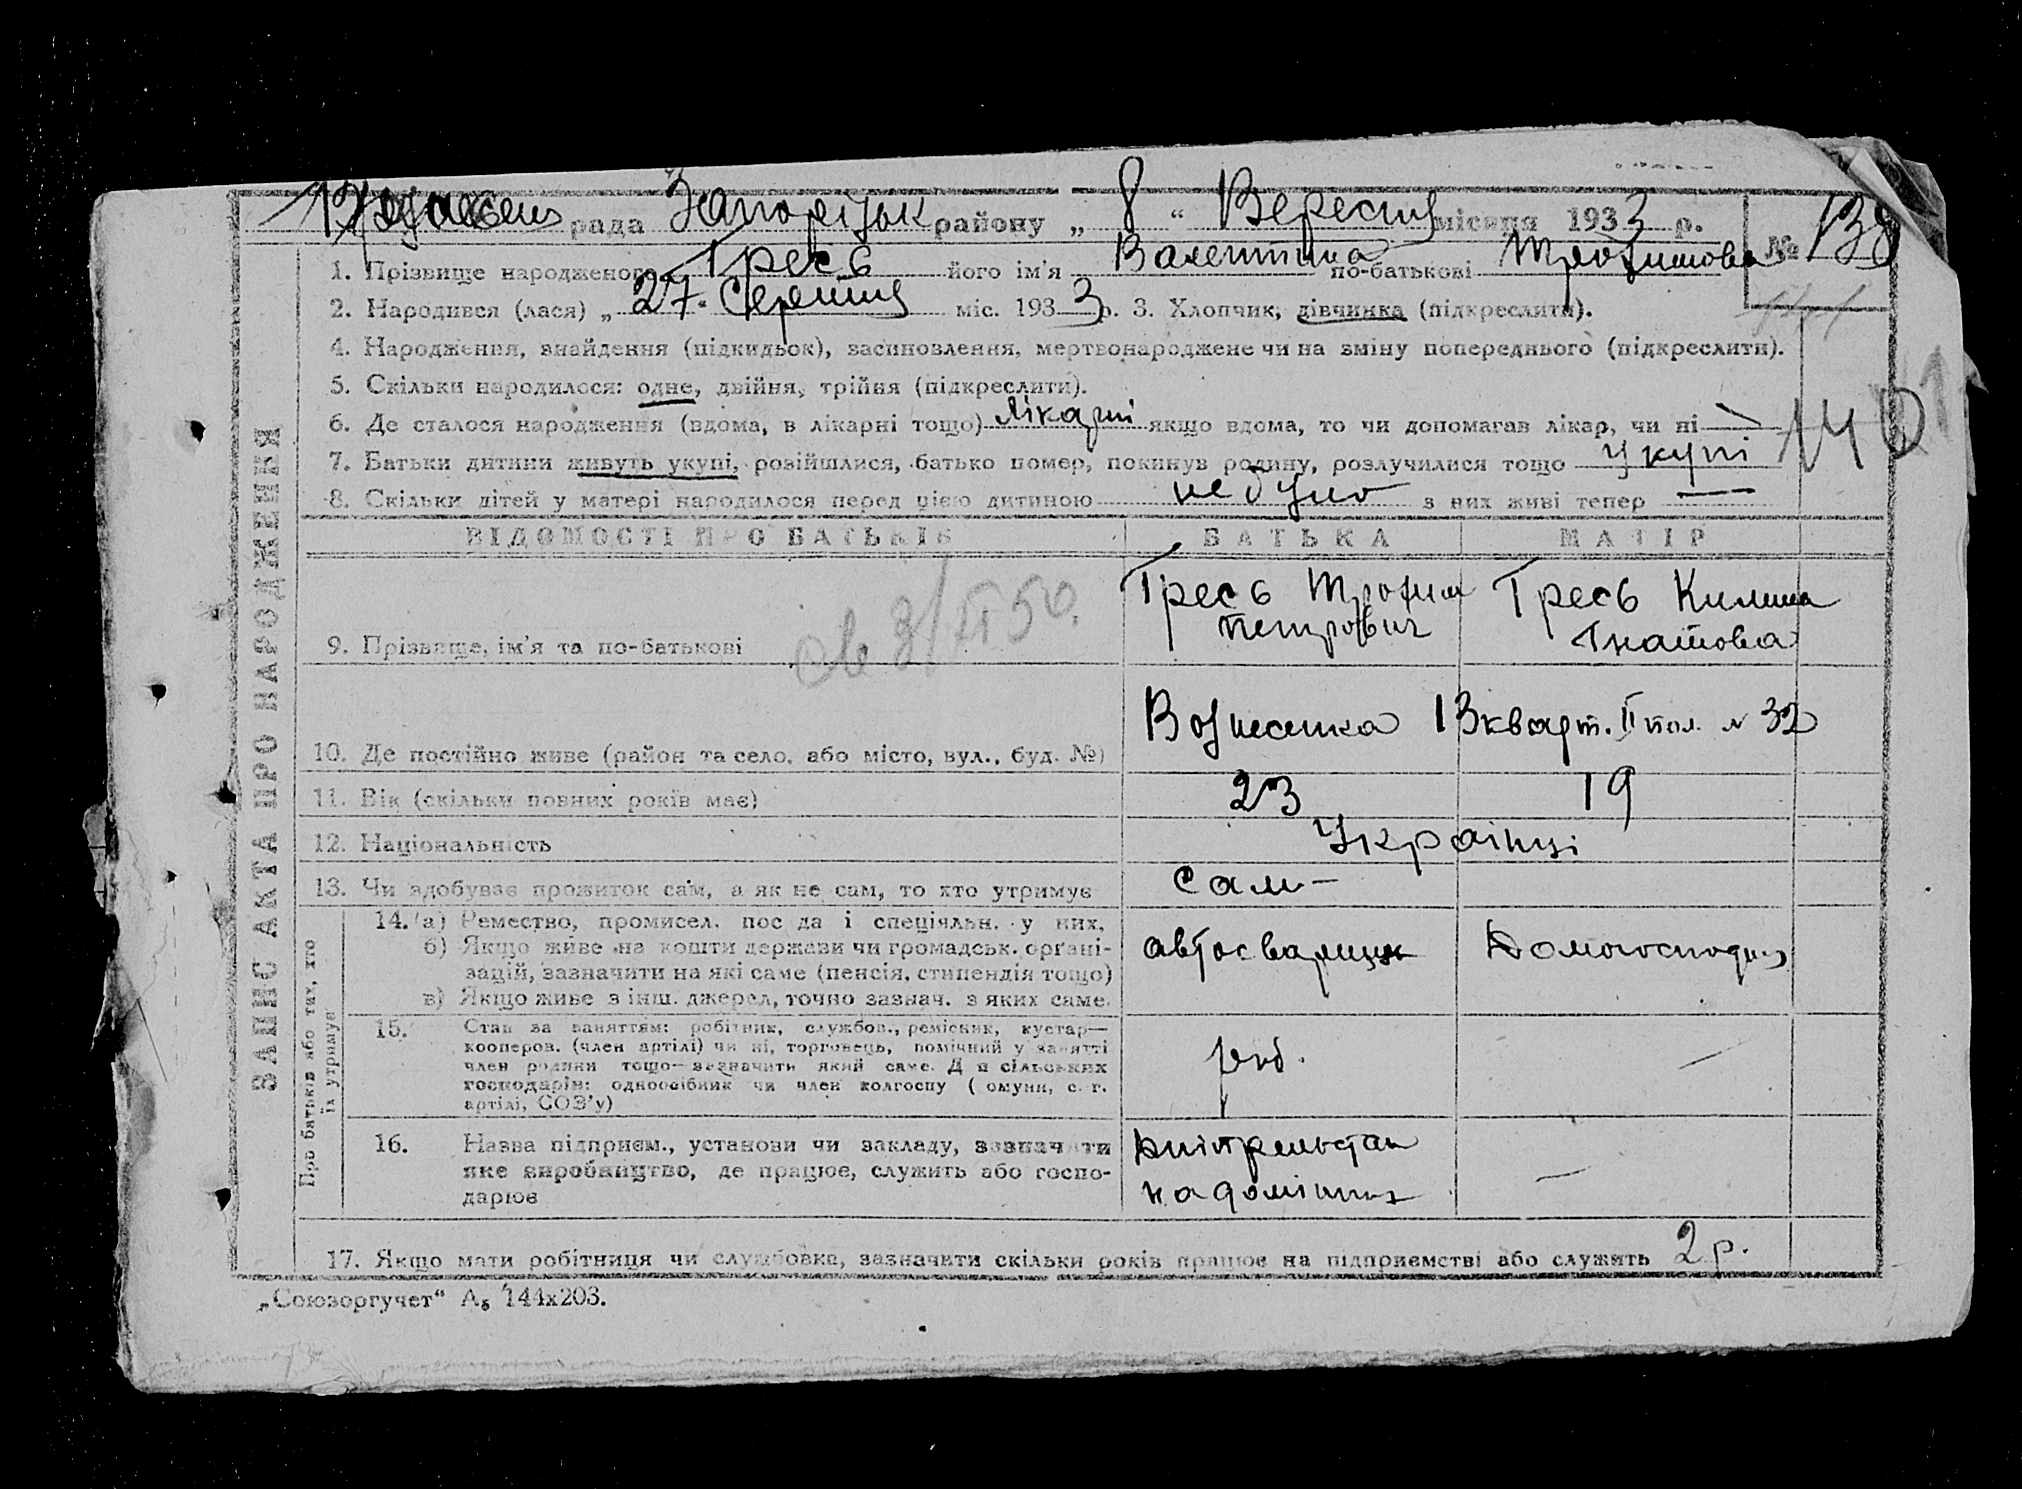 рада Запорізьк району „ 8 “ Вересня місяця 1933 р.
№ 138
1. Прізвище народженого Тресь його ім'я Валентина по-батькові Трохимова
2. Народився (лася) „ 27. Серпня міс. 1933 р. 3. Хлопчик, дівчинка (підкреслити).
4. Народження, знайдення (підкидьок), засиновлення, мертвонароджене чи на зміну попереднього (підкреслити).
5. Скільки народилося: одне, двійня, трійня (підкреслити).
6. Де сталося народження (вдома, в лікарні тощо) лікарні якщо вдома, то чи допомагав лікар, чи ні —
140
7. Батьки дитини живуть укупі, розійшлися, батько помер, покинув родину, розлучилися тощо Укупі
8. Скільки дітей у матері народилося перед цією дитиною не було з них живі тепер —
ВІДОМОСТІ ПРО БАТЬКІВ БАТЬКА МАТІР
9. Прізвище, ім'я та по-батькові Тресь Трохим Тресь Килина
Петрович Гнатова
10. Де постійно живе (район та село, або місто, вул., буд. №) Вознесенка 13 кварт. II пол. N 32
11. Вік (скільки повних років має) 23 19
12. Національність Українці
13. Чи здобуває прожиток сам, а як не сам, то хто утримує Сам –
Про батьків або тих, хто їх утримує
14. а) Ремество, промисел, посада і спеціяльн. у них.
б) Якщо живе на кошти держави чи громадськ. органі-
зацій, зазначити на які саме (пенсія, стипендія тощо)
в) Якщо живе з інш. джерел, точно зазнач. з яких саме.
автосварщик Домогосподин
15. Стан за заняттям: робітник, службов., ремісник, кустар—
кооперов. (член артілі) чи ні, торговець, помічний у занятті
член родини тощо—зазначити який саме. Для сільських
господарів: одноосібник чи член колгоспу (комуни, с. г.
артілі, СОЗ'у)
роб. —
16. Назва підприєм., установи чи закладу, зазначити
яке виробництво, де працює, служить або госпо-
дарює
Дніпрельстан —
17. Якщо мати робітниця чи службовка, зазначити скільки років працює на підприємстві або служить 2 р.
„Союзоргучет“ А₅ 144х203.
ЗАПИС АКТА ПРО НАРОДЖЕННЯ